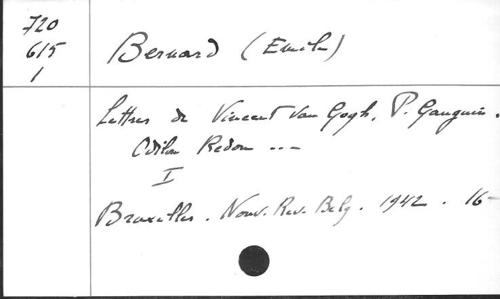 720
615
1
Bernard (Emile)
Lettres de Vincent Van Gogh, P. Gauguin.
Odilon Redon ---
I
Bruxelles. Nouv. Rev. Belg. 1942. 16-